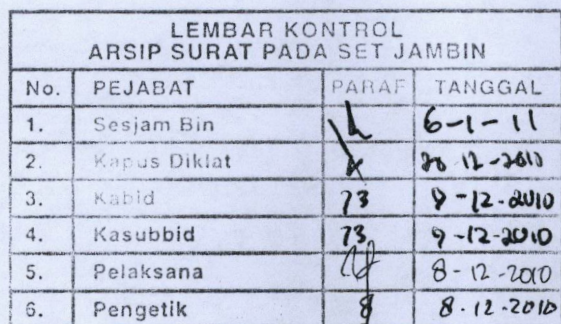 LEMBAR KONTROL
ARSIP SURAT PADA SET JAMBIN
No. PEJABAT PARAF TANGGAL
1. Sesjam Bin 6-1-11
2. Kapus Diklat -12-2010
3. Kabid 9-12-2010
4. Kasubbid 9-12-2010
5. Pelaksana 8-12-2010
6. Pengetik 8-12-2010